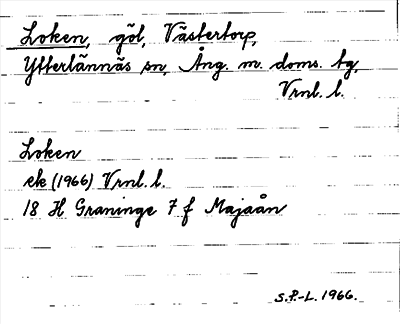 Loken, göl, Västertorp,
Ytterlännäs sn, Ång. m. doms. tg,
Vrnl. l.
Loken
ek (1966) Vrnl. l.
18 H Graninge 7 f Majaån
S.P.-L. 1966.